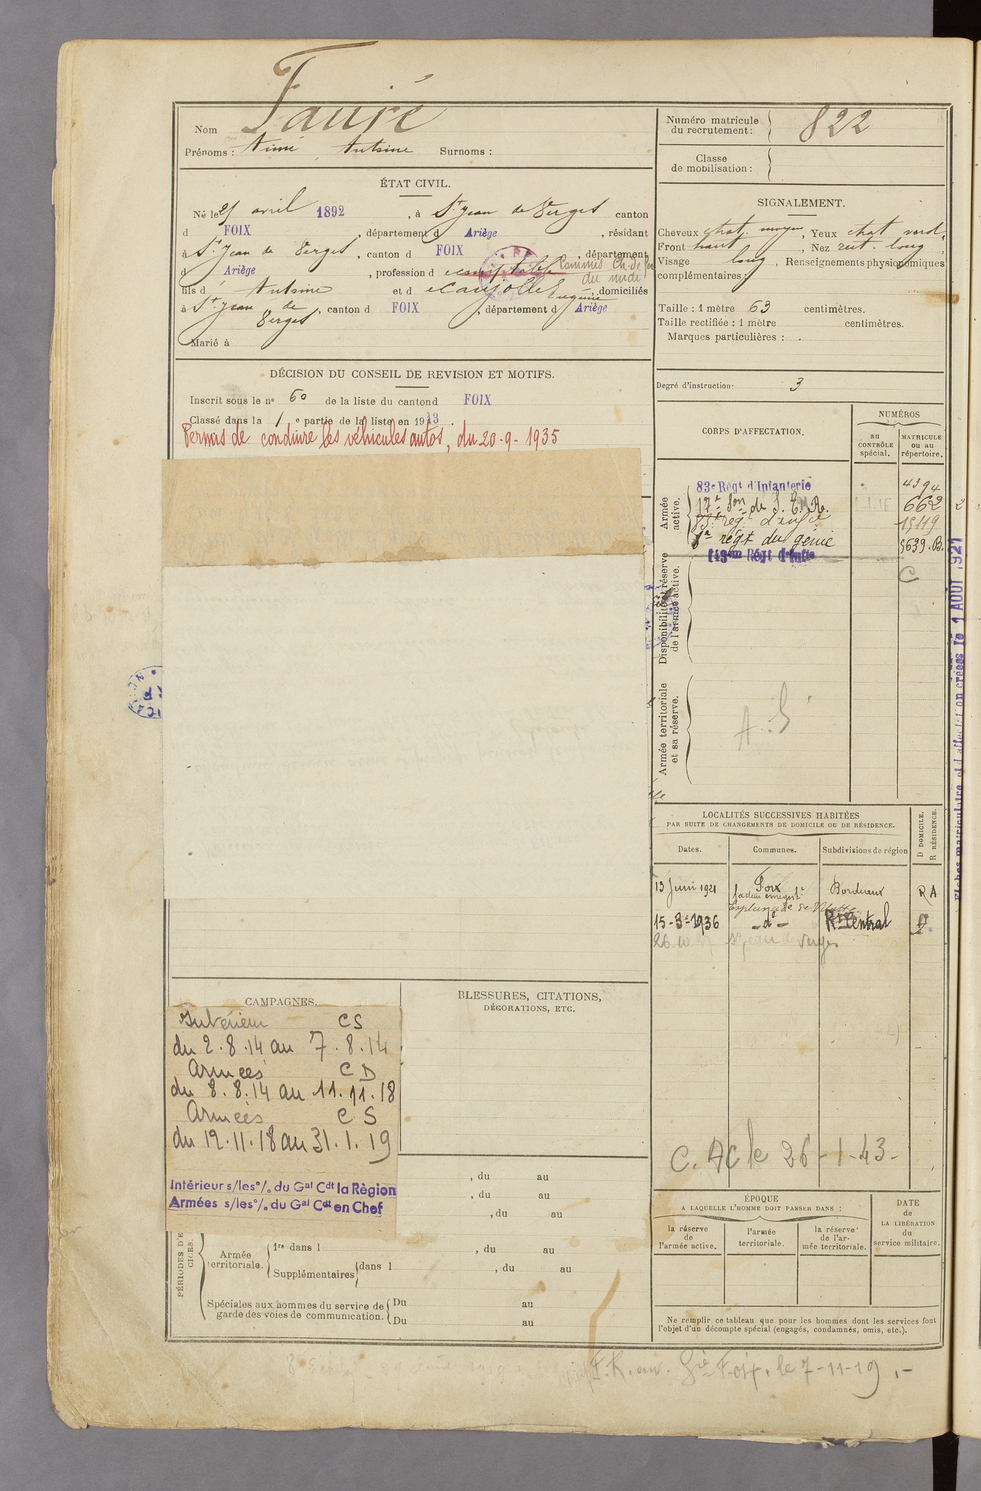 Nom Fauré
Prénoms : Aimé Antoine Surnoms :
ÉTAT CIVIL.
Né le 25 avril 1892, à St Jean de Verges canton
d FOIX, département d Ariège, résidant
à St Jean de Verges, canton d FOIX, département
d Ariège, profession d comptable Commis Ch. de fer
du midi
fils d Antoine et d Eugénie, domiciliés
à St Jean de Verges, canton d FOIX, département d Ariège
Marié à
DÉCISION DU CONSEIL DE REVISION ET MOTIFS.
Inscrit sous le n° 60 de la liste du canton d FOIX
Classé dans la 1 e partie de la liste en 1913.
Permis de conduire les véhicules autos, du 20-9-1935
CAMPAGNES.
Intérieur CS
du 2.8.14 au 7.8.14
Armées CD
du 8.8.14 au 11.11.18
Armées CS
du 12.11.18 au 31.1.19
Intérieur s/les °/. du Gal Cdt la Région
Armées s/les °/. du Gal Cdt en Chef
BLESSURES, CITATIONS,
DÉCORATIONS, ETC.
, du au
, du au
, du au
PÉRIODES D'EXER-
CICES.
Armée territoriale. 1re dans l , du au
Supplémentaires dans l , du au
Spéciales aux hommes du service de garde des voies de communication. Du au
Du au
Numéro matricule du recrutement : 822
Classe de mobilisation :
SIGNALEMENT.
Cheveux chat. moyen, Yeux chat verd.
Front haut, Nez rect. long
Visage long, Renseignements physionomiques
complémentaires :
Taille : 1 mètre 63 centimètres.
Taille rectifiée : 1 mètre centimètres.
Marques particulières :
Degré d'instruction : 3
CORPS D'AFFECTATION.
NUMÉROS
au CONTRÔLE spécial.
MATRICULE ou au répertoire.
Armée active.
83e Régt d'Infanterie 4394
17e Son de S. E.M.R. 662
régt d'infie 15119
régt du génie 5639.B.
143eme Régt d'Infie
C
Disponibilité et réserve de l'armée active.
Armée territoriale et sa réserve.
A.S
1 AOUT 1927
LOCALITÉS SUCCESSIVES HABITÉES
PAR SUITE DE CHANGEMENTS DE DOMICILE OU DE RÉSIDENCE.
Dates. Communes. Subdivisions de région D DOMICILE. R RÉSIDENCE.
13 Juin 1921 Foix Bordeaux RA
Esplanade de Villotte
15-3-1936 -d°- Rt Central
St Jean de Verges
C. AC le 26-1-43-
ÉPOQUE
A LAQUELLE L'HOMME DOIT PASSER DANS :
la réserve de l'armée active.
l'armée territoriale.
la réserve de l'armée territoriale.
DATE de LA LIBÉRATION du service militaire.
Ne remplir ce tableau que pour les hommes dont les services font
l'objet d'un décompte spécial (engagés, condamnés, omis, etc.).
Foix, le 7-11-19.-